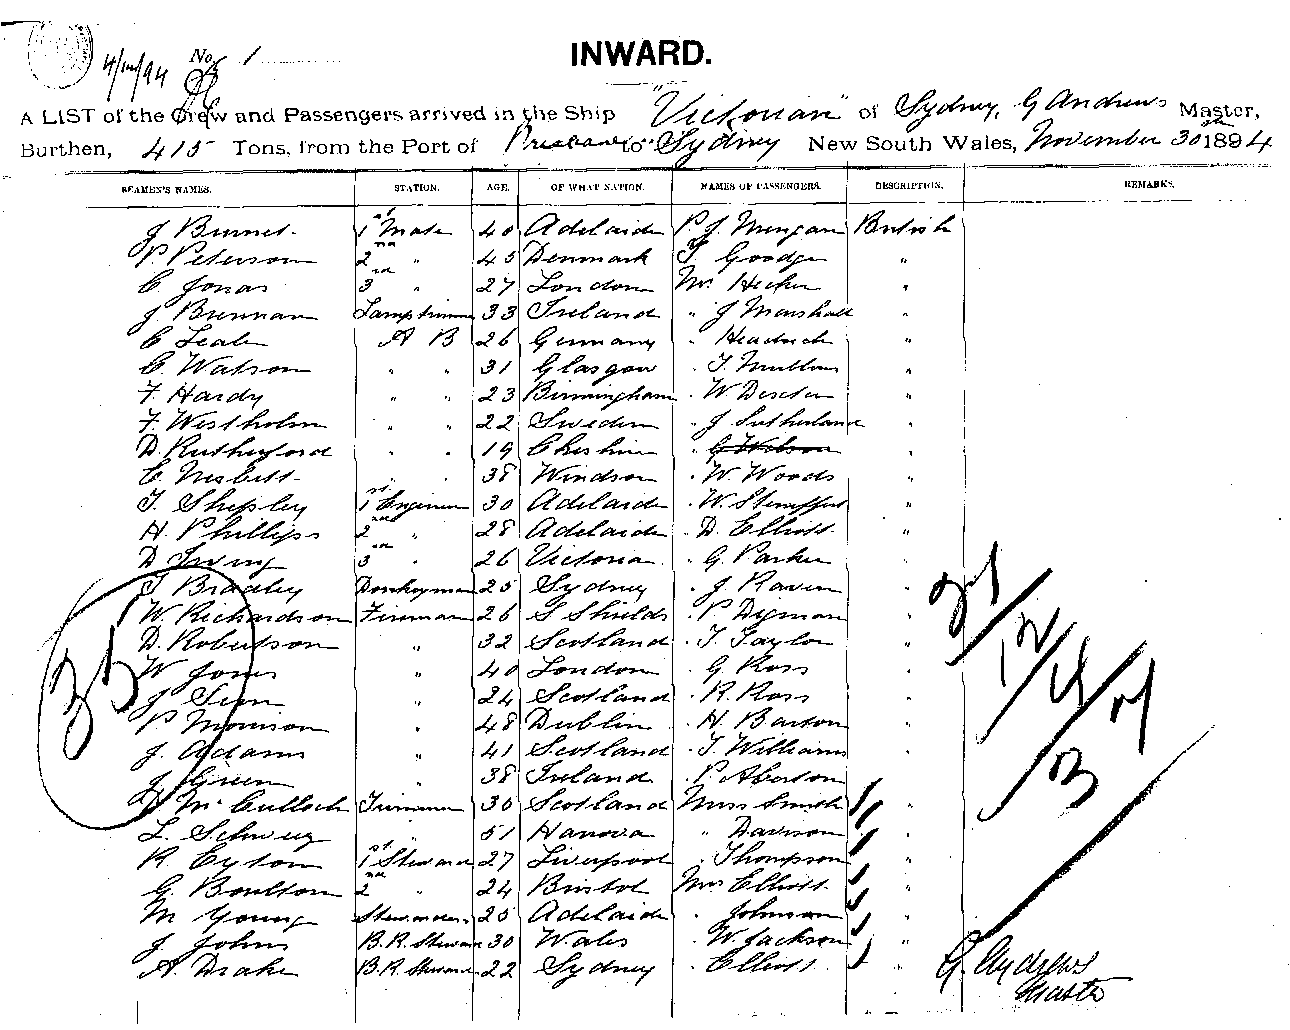 4/12/94 No. 1
INWARD.
A LIST of the Crew and Passengers arrived in the Ship "Victorian" of Sydney, G Andrews Master,
Burthen, 415 Tons, from the Port of Brisbane to Sydney New South Wales, November 30th 1894
SEAMEN'S NAMES. STATION. AGE. OF WHAT NATION. NAMES OF PASSENGERS. DESCRIPTION. REMARKS.
J Burnet 1st Mate 40 Adelaide P. J. British
P. Peterson 2nd " 45 Denmark T Goodge "
C. Jonas 3rd " 27 London Mr "
J Brennan Lamptrimmer 33 Ireland " J Marshall "
C A B 26 Germany " "
C. Watson " " 31 Glasgow " T. "
F. Hardy " " 23 Birmingham " W "
F. Westholm " " 22 Sweden " J Sutherland "
D. Rutherford " " 19 Cheshire " G Wilson "
C. Nesbitt 38 Windsor " W. Woods "
T. Shepley 1st Engineer 30 Adelaide " W. "
H. Phillips 2nd " 28 Adelaide " D. Elliott "
D Irving 3rd " 26 Victoria " G. Parker "
T Bradley Donkeyman 25 Sydney " J Raven "
W. Richardson Fireman 26 S Shields " P Dignan "
D. Robertson " 32 Scotland " T Taylor "
W Jones " 40 London " G Ross "
J Sim " 24 Scotland " R. Ross "
P Morrison " 48 Dublin " H. Barton "
J. Adams " 41 Scotland " T. Williams "
J Green " 38 Ireland " P. "
McCulloch Trimmer 30 Scotland Miss Smith "
L. 51 Hanova " Davison "
R Eyton 1st Steward 27 Liverpool " Thompson "
G. Boulton 2nd " 24 Bristol Mrs Elliott "
M Young Stewardess 25 Adelaide " Johnson "
J Johns B.R. Steward 30 Wales " W. Jackson "
A. Drake B.R. Steward 22 Sydney " Elliott "
35
21
12
4
37
G. Andrews
Master